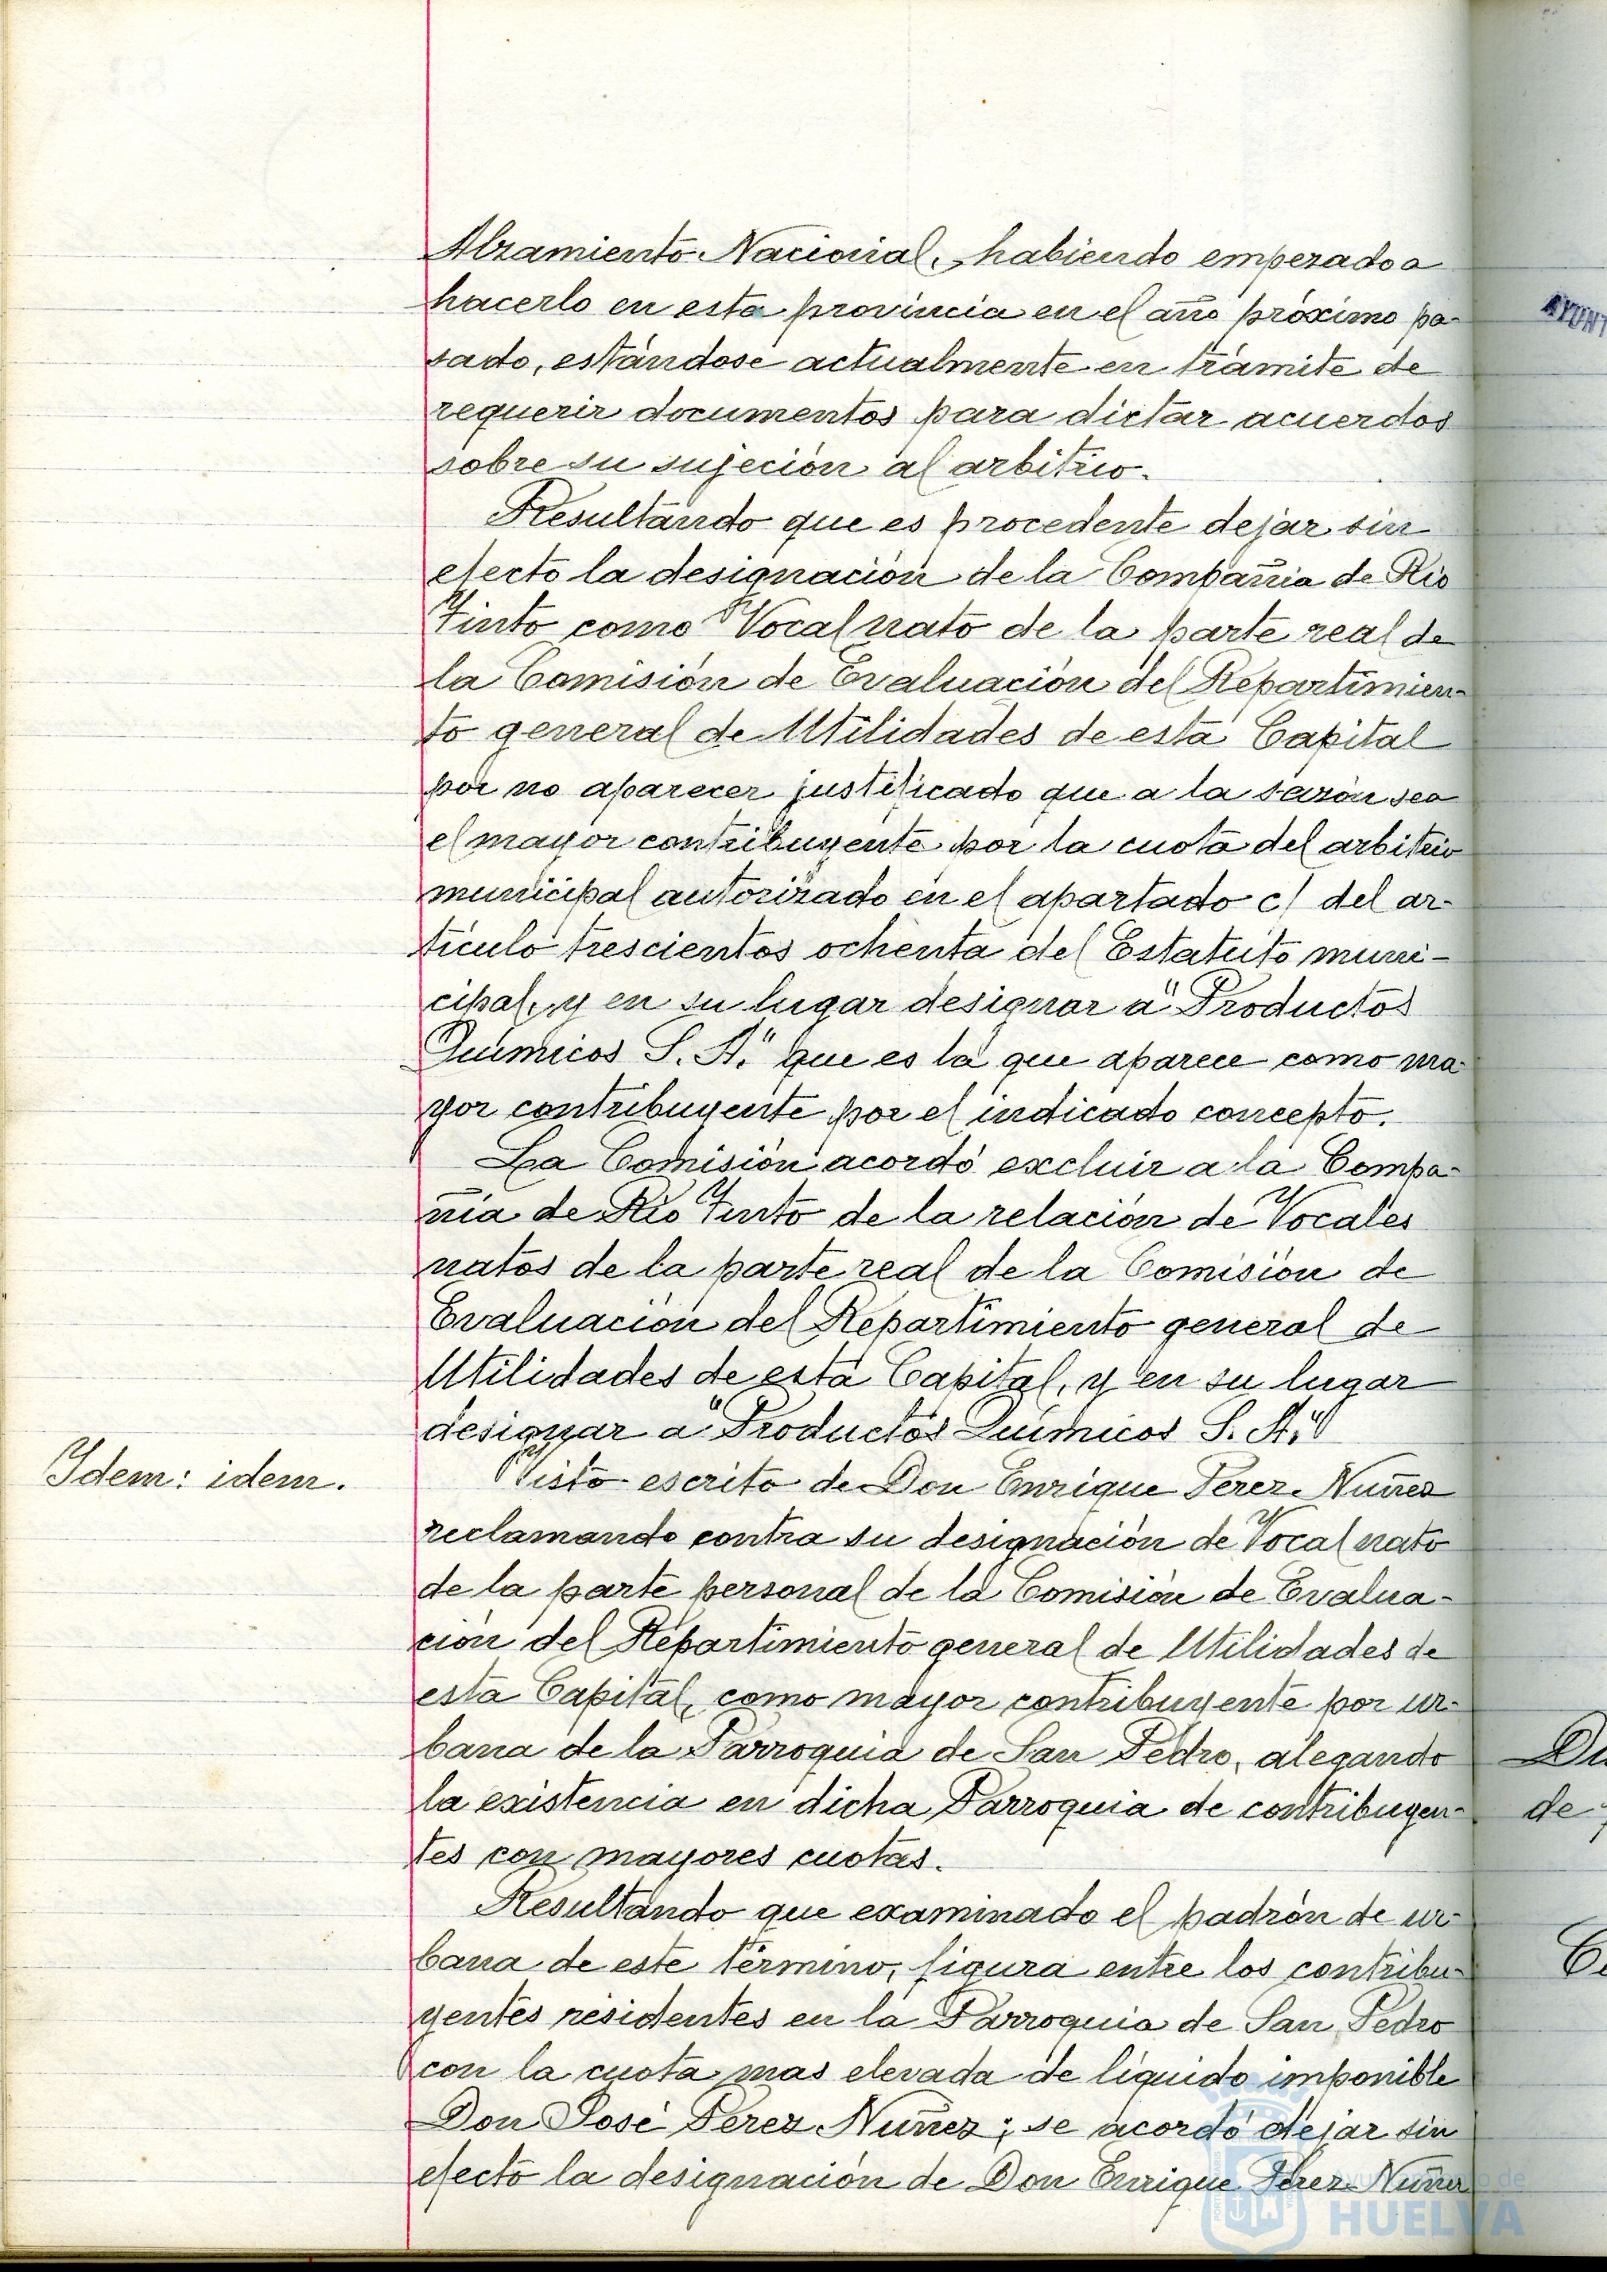 Alzamiento Nacional, habiendo empezado a
hacerlo en esta provincia en el año próximo pa-
sado, estándose actualmente en trámite de
requerir documentos para dictar acuerdos
sobre su sujeción al arbitrio.
Resultando que es procedente dejar sin
efecto la designación de la Compañia de Rio
Tinto como Vocal nato de la parte real de
la Comisión de Evaluación del Repartimien-
to general de Utilidades de esta Capital
por no aparecer justificado que a la sazón sea
el mayor contribuyente por la cuota del arbitrio
municipal autorizado en el apartado c) del ar-
tículo trescientos ochenta del Estatuto muni-
cipal, y en su lugar designar a "Productos
Químicos S. A." que es la que aparece como ma-
yor contribuyente por el indicado concepto.
La Comisión acordó excluir a la Compa-
ñia de Rio Tinto de la relación de Vocales
natos de la parte real de la Comisión de
Evaluación del Repartimiento general de
Utilidades de esta Capital, y en su lugar
designar a "Productos Químicos S. A."
Idem: idem.
Visto escrito de Don Enrique Perez Nuñez
reclamando contra su designación de Vocal nato
de la parte personal de la Comisión de Evalua-
ción del Repartimiento general de Utilidades de
esta Capital, como mayor contribuyente por ur-
bana de la Parroquia de San Pedro, alegando
la existencia en dicha Parroquia de contribuyen-
tes con mayores cuotas.
Resultando que examinado el padrón de ur-
bana de este término, figura entre los contribu-
yentes residentes en la Parroquia de San Pedro
con la cuota mas elevada de líquido imponible
Don José Perez Nuñez; se acordó dejar sin
efecto la designación de Don Enrique Perez Nuñez
AYUNT
de
Ayuntamiento de
HUELVA